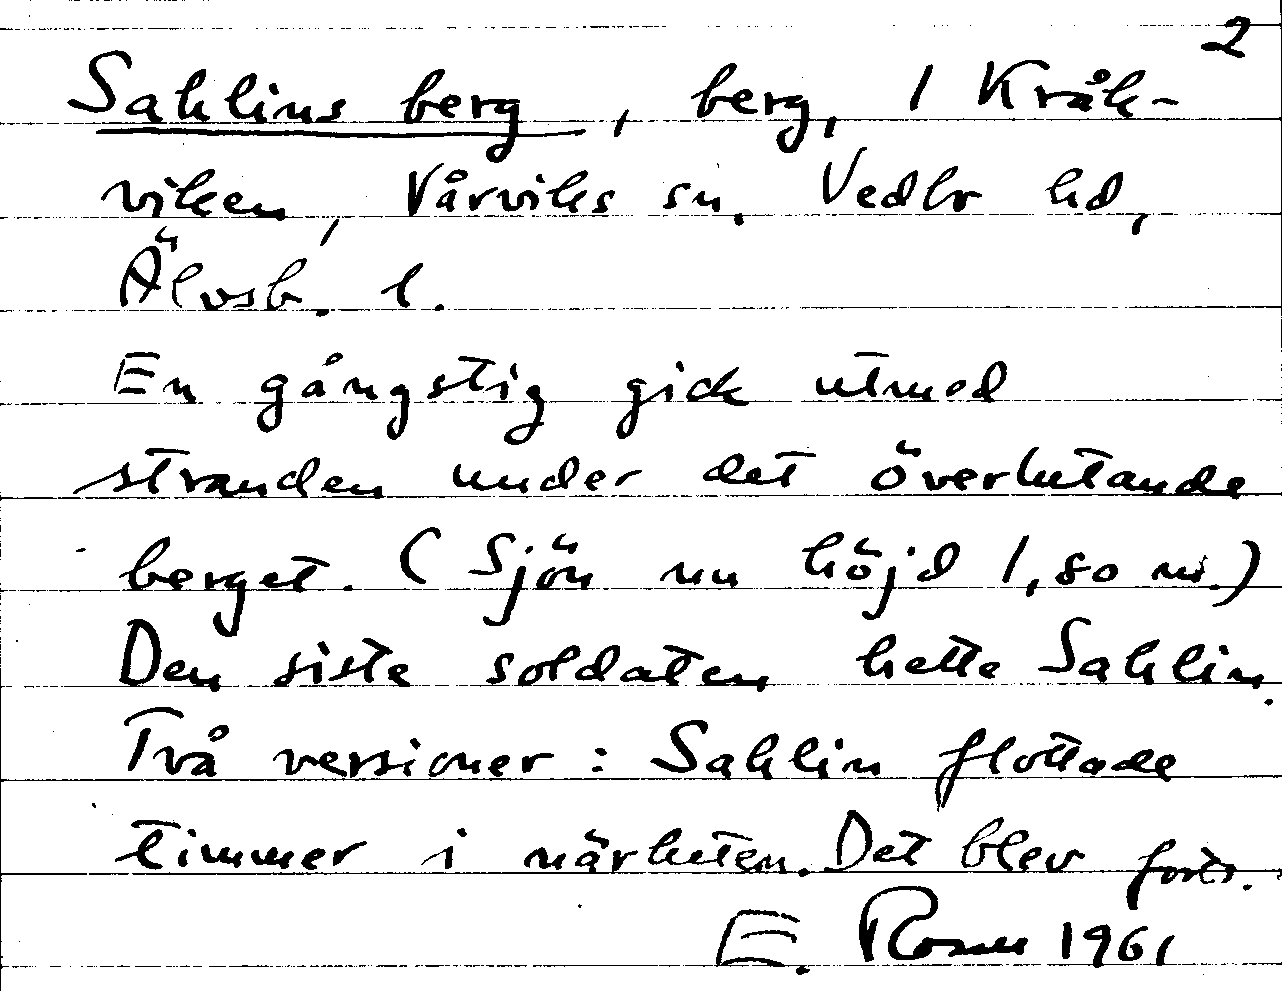 2
Sahlins berg, berg, 1 Kråk-
viken, Vårviks sn. Vedbr hd,
Älvsb. l.
En gångstig gick utmed
stranden under det överlutande
berget. (Sjön nu höjd 1,80 m.)
Den siste soldaten hette Sahlin.
Två versioner: Sahlin flottade
timmer i närheten. Det blev forts.
E. Rosen 1961